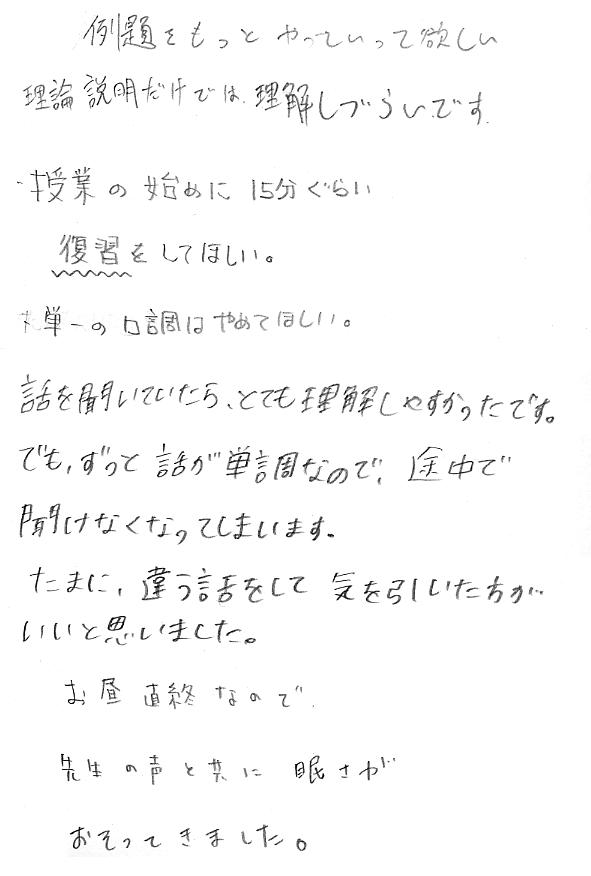 例題をもっとやっていって欲しい
理論説明だけでは、理解しづらいです
・授業の始めに15分ぐらい
復習をしてほしい。
単一の口調はやめてほしい。
話を聞いていたら、とても理解しやすかったです。
でも、ずっと話が単調なので、途中で
聞けなくなってしまいます。
たまに、違う話をして気を引いた方が
いいと思いました。
お昼直終なので
先生の声と共に眠さが
おそってきました。